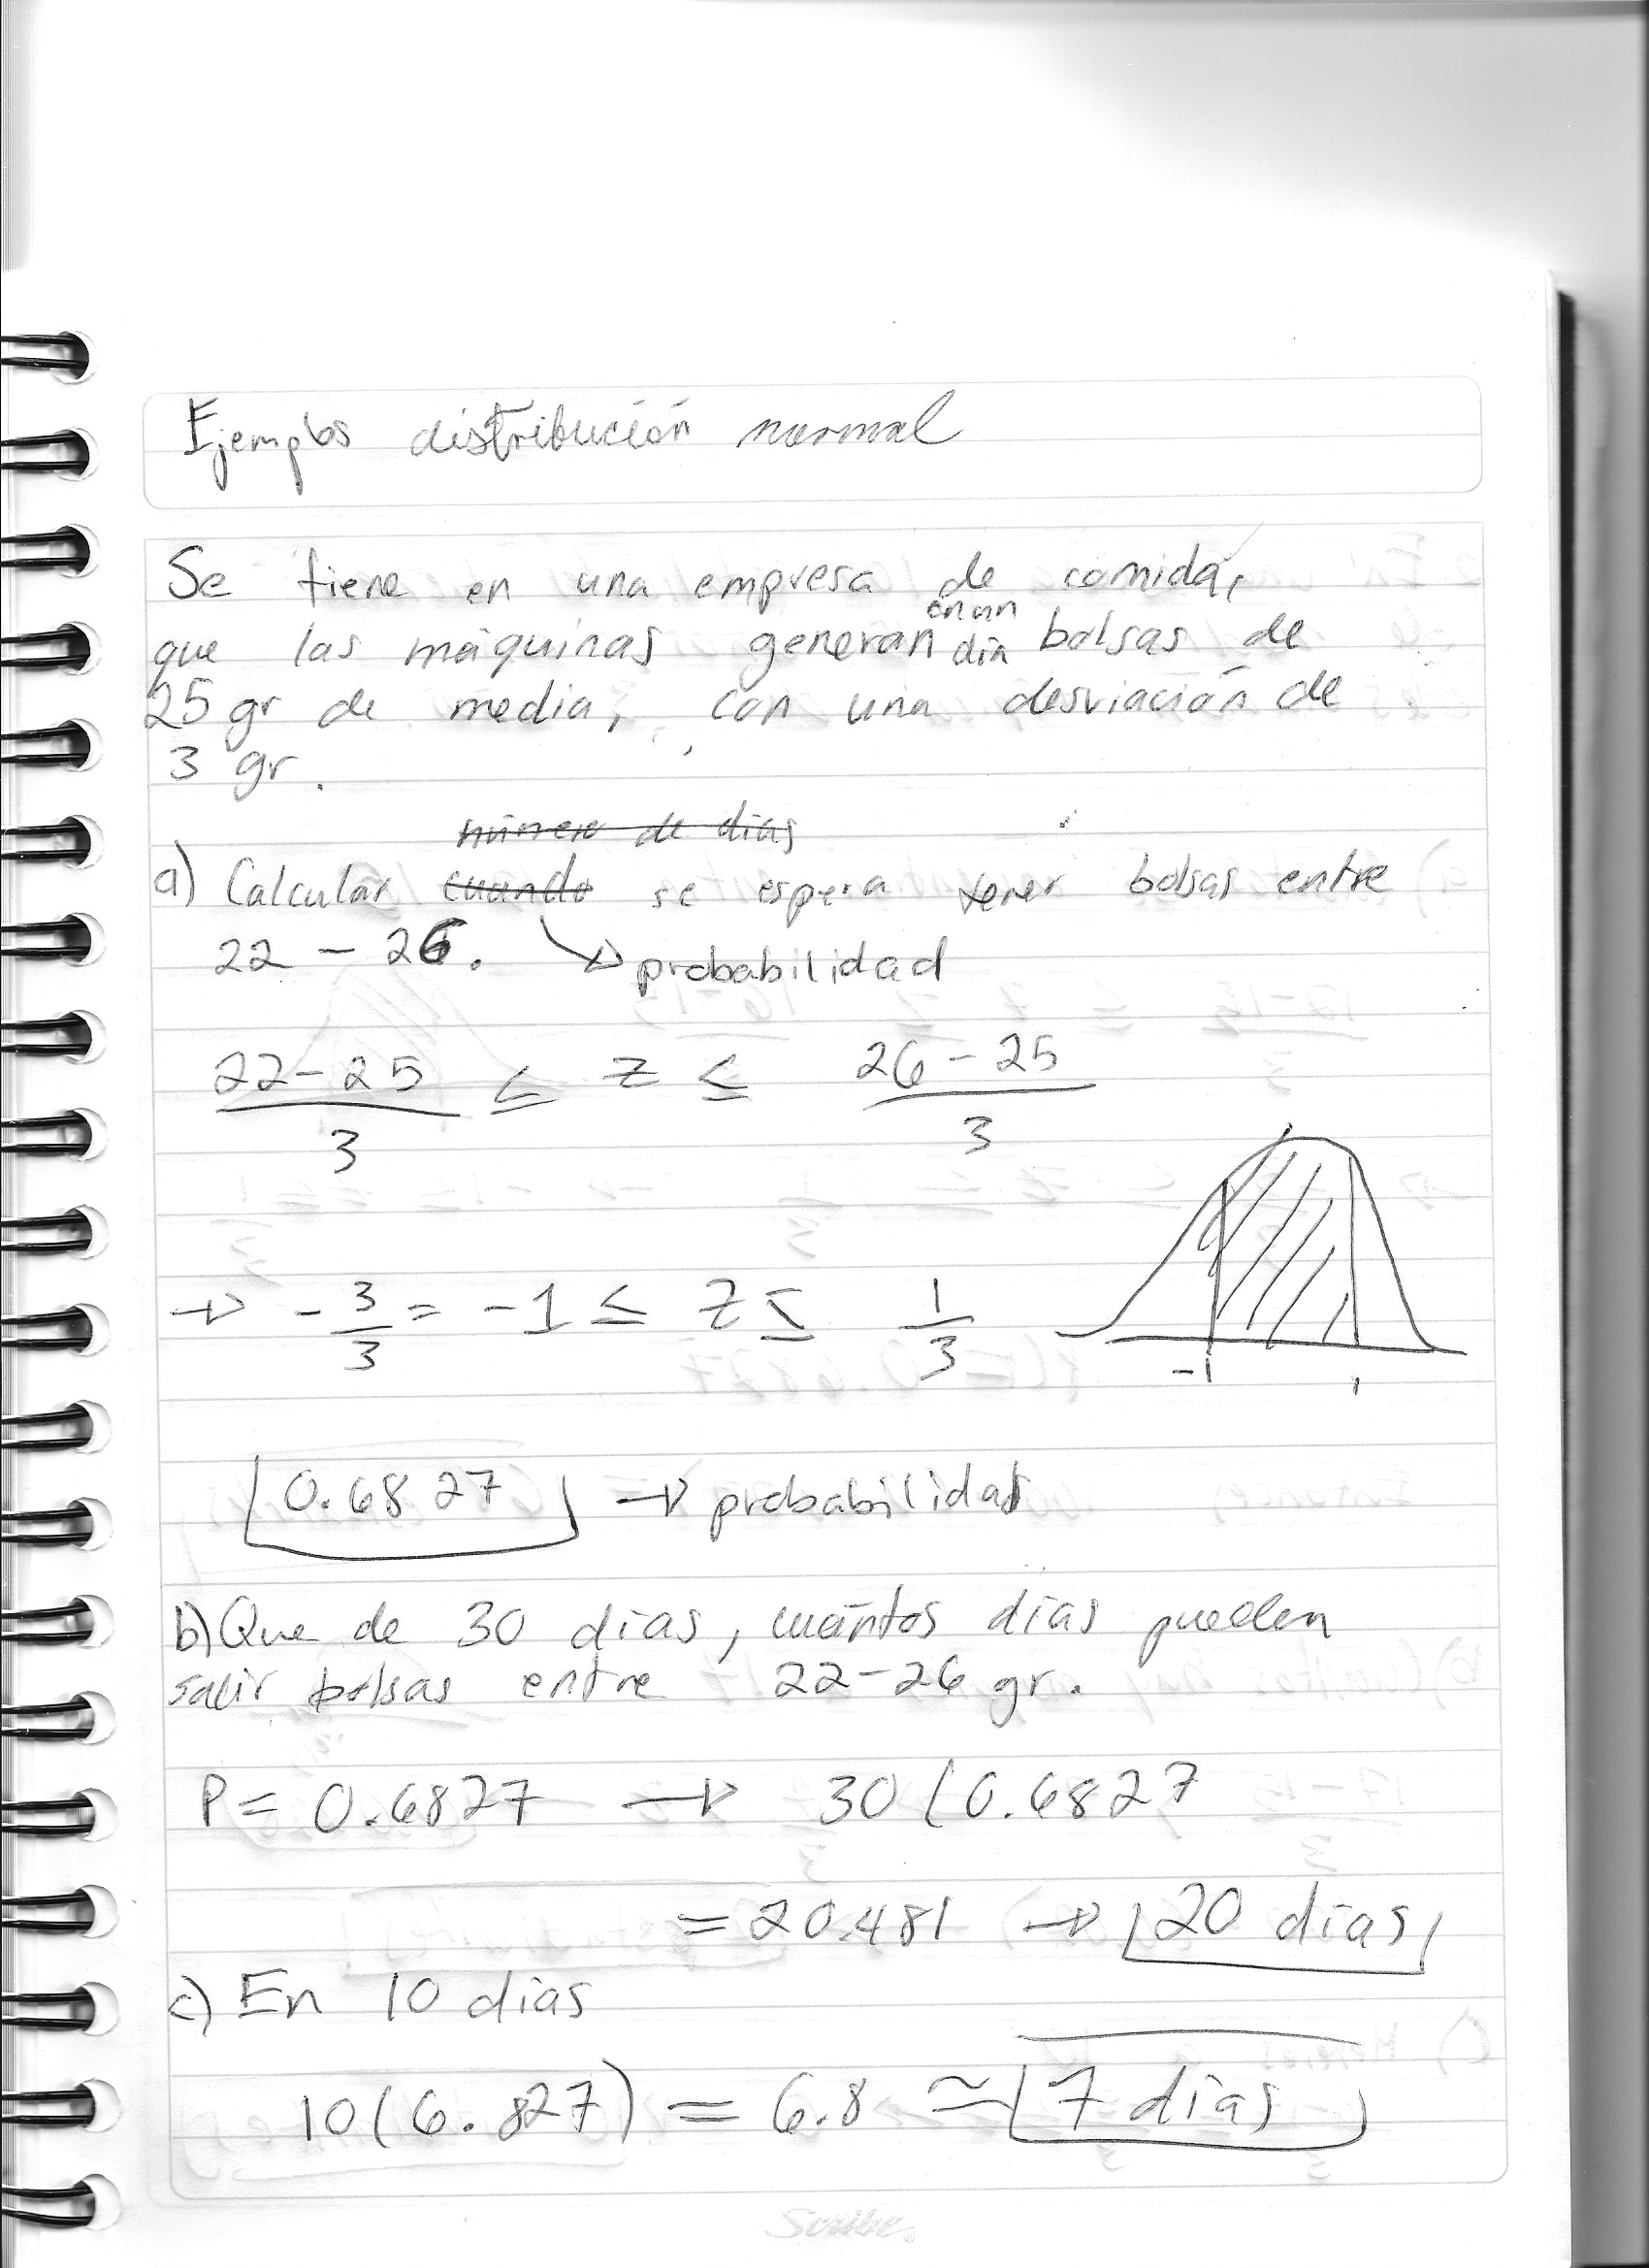 Ejemplos distribución normal
Se tiene en una empresa de comida,
que las máquinas generan en un día bolsas de
25 gr de media, con una desviación de
3 gr.
número de días
a) Calcular cuando se espera tener bolsas entre
22 - 26. → probabilidad
22-25/3 ≤ z ≤ 26-25/3
→ -3/3 = -1 ≤ z ≤ 1/3
-1 1
0.6827 → probabilidad
b) Que de 30 días, cuántos días pueden
salir bolsas entre 22-26 gr.
P = 0.6827 → 30 (0.6827
= 20.481 → 20 días
c) En 10 días
10(6.827) = 6.8 ≃ 7 días
Scribe